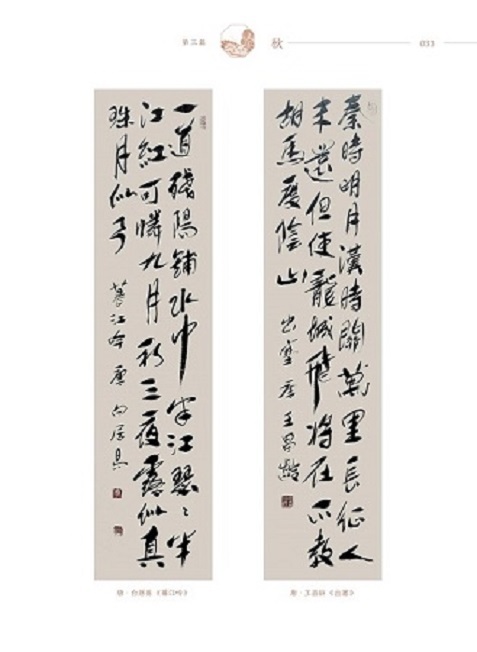 第三篇
秋
033
秦時明月漢時關萬里長征人
未還但使龍城飛將在不教
胡馬度陰山 出塞 唐 王昌齡
一道殘陽鋪水中半江瑟〻半
江紅可憐九月初三夜露似真
珠月似弓 暮江吟 唐 白居易
唐·王昌龄《出塞》
唐·白居易《暮江吟》